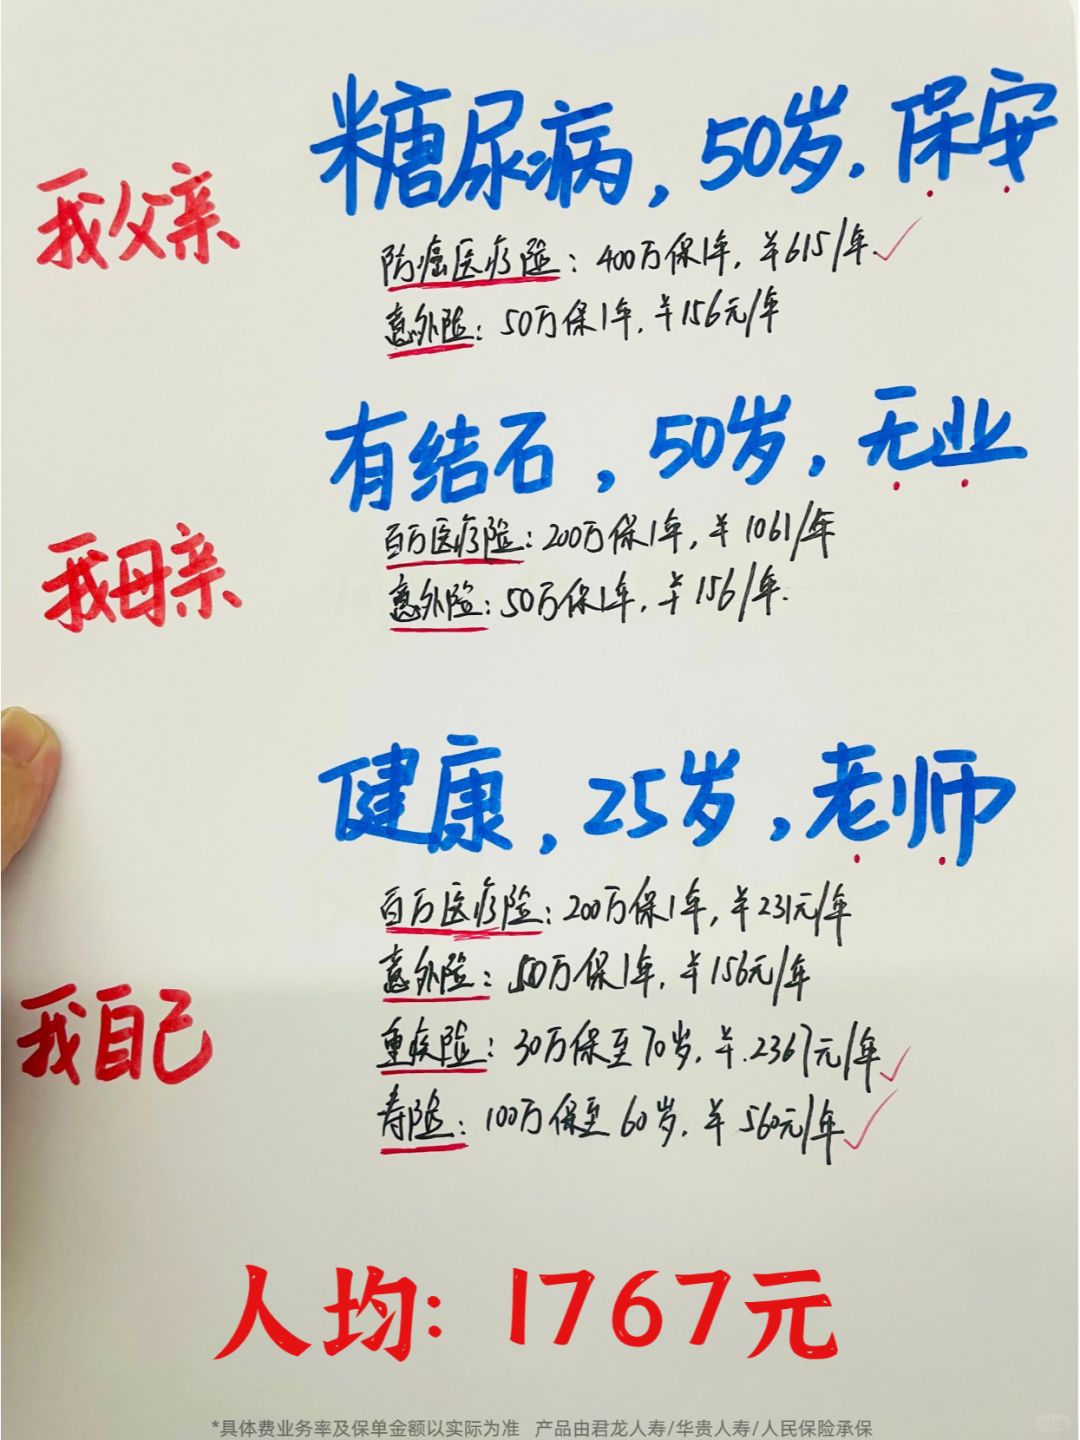 我父亲
糖尿病,50岁.保安
防癌医疗险:400万保1年,¥615/年✓
意外险:50万保1年,¥156元/年
我母亲
有结石,50岁,无业
百万医疗险:200万保1年,¥1061/年
意外险:50万保1年,¥156/年.
我自己
健康,25岁,老师
百万医疗险:200万保1年,¥231元/年
意外险:50万保1年,¥156元/年
重疾险:30万保至70岁,¥.2367元/年✓
寿险:100万保至60岁,¥560元/年✓
人均:1767元
*具体费业务率及保单金额以实际为准 产品由君龙人寿/华贵人寿/人民保险承保